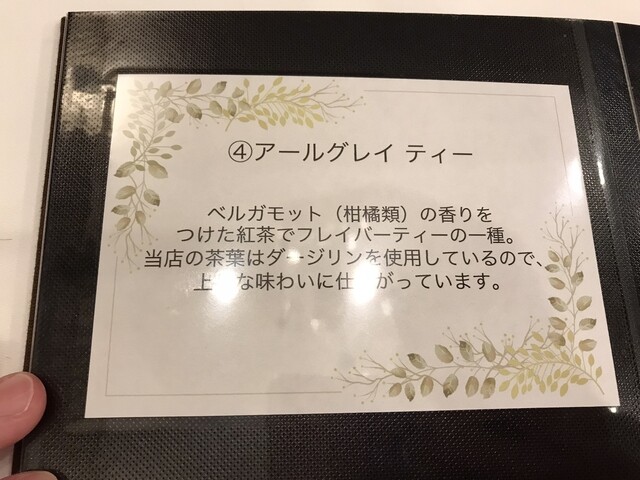 ④アールグレイ ティー
ベルガモット（柑橘類）の香りを
つけた紅茶でフレイバーティーの一種。
当店の茶葉はダージリンを使用しているので、
上品な味わいに仕上がっています。